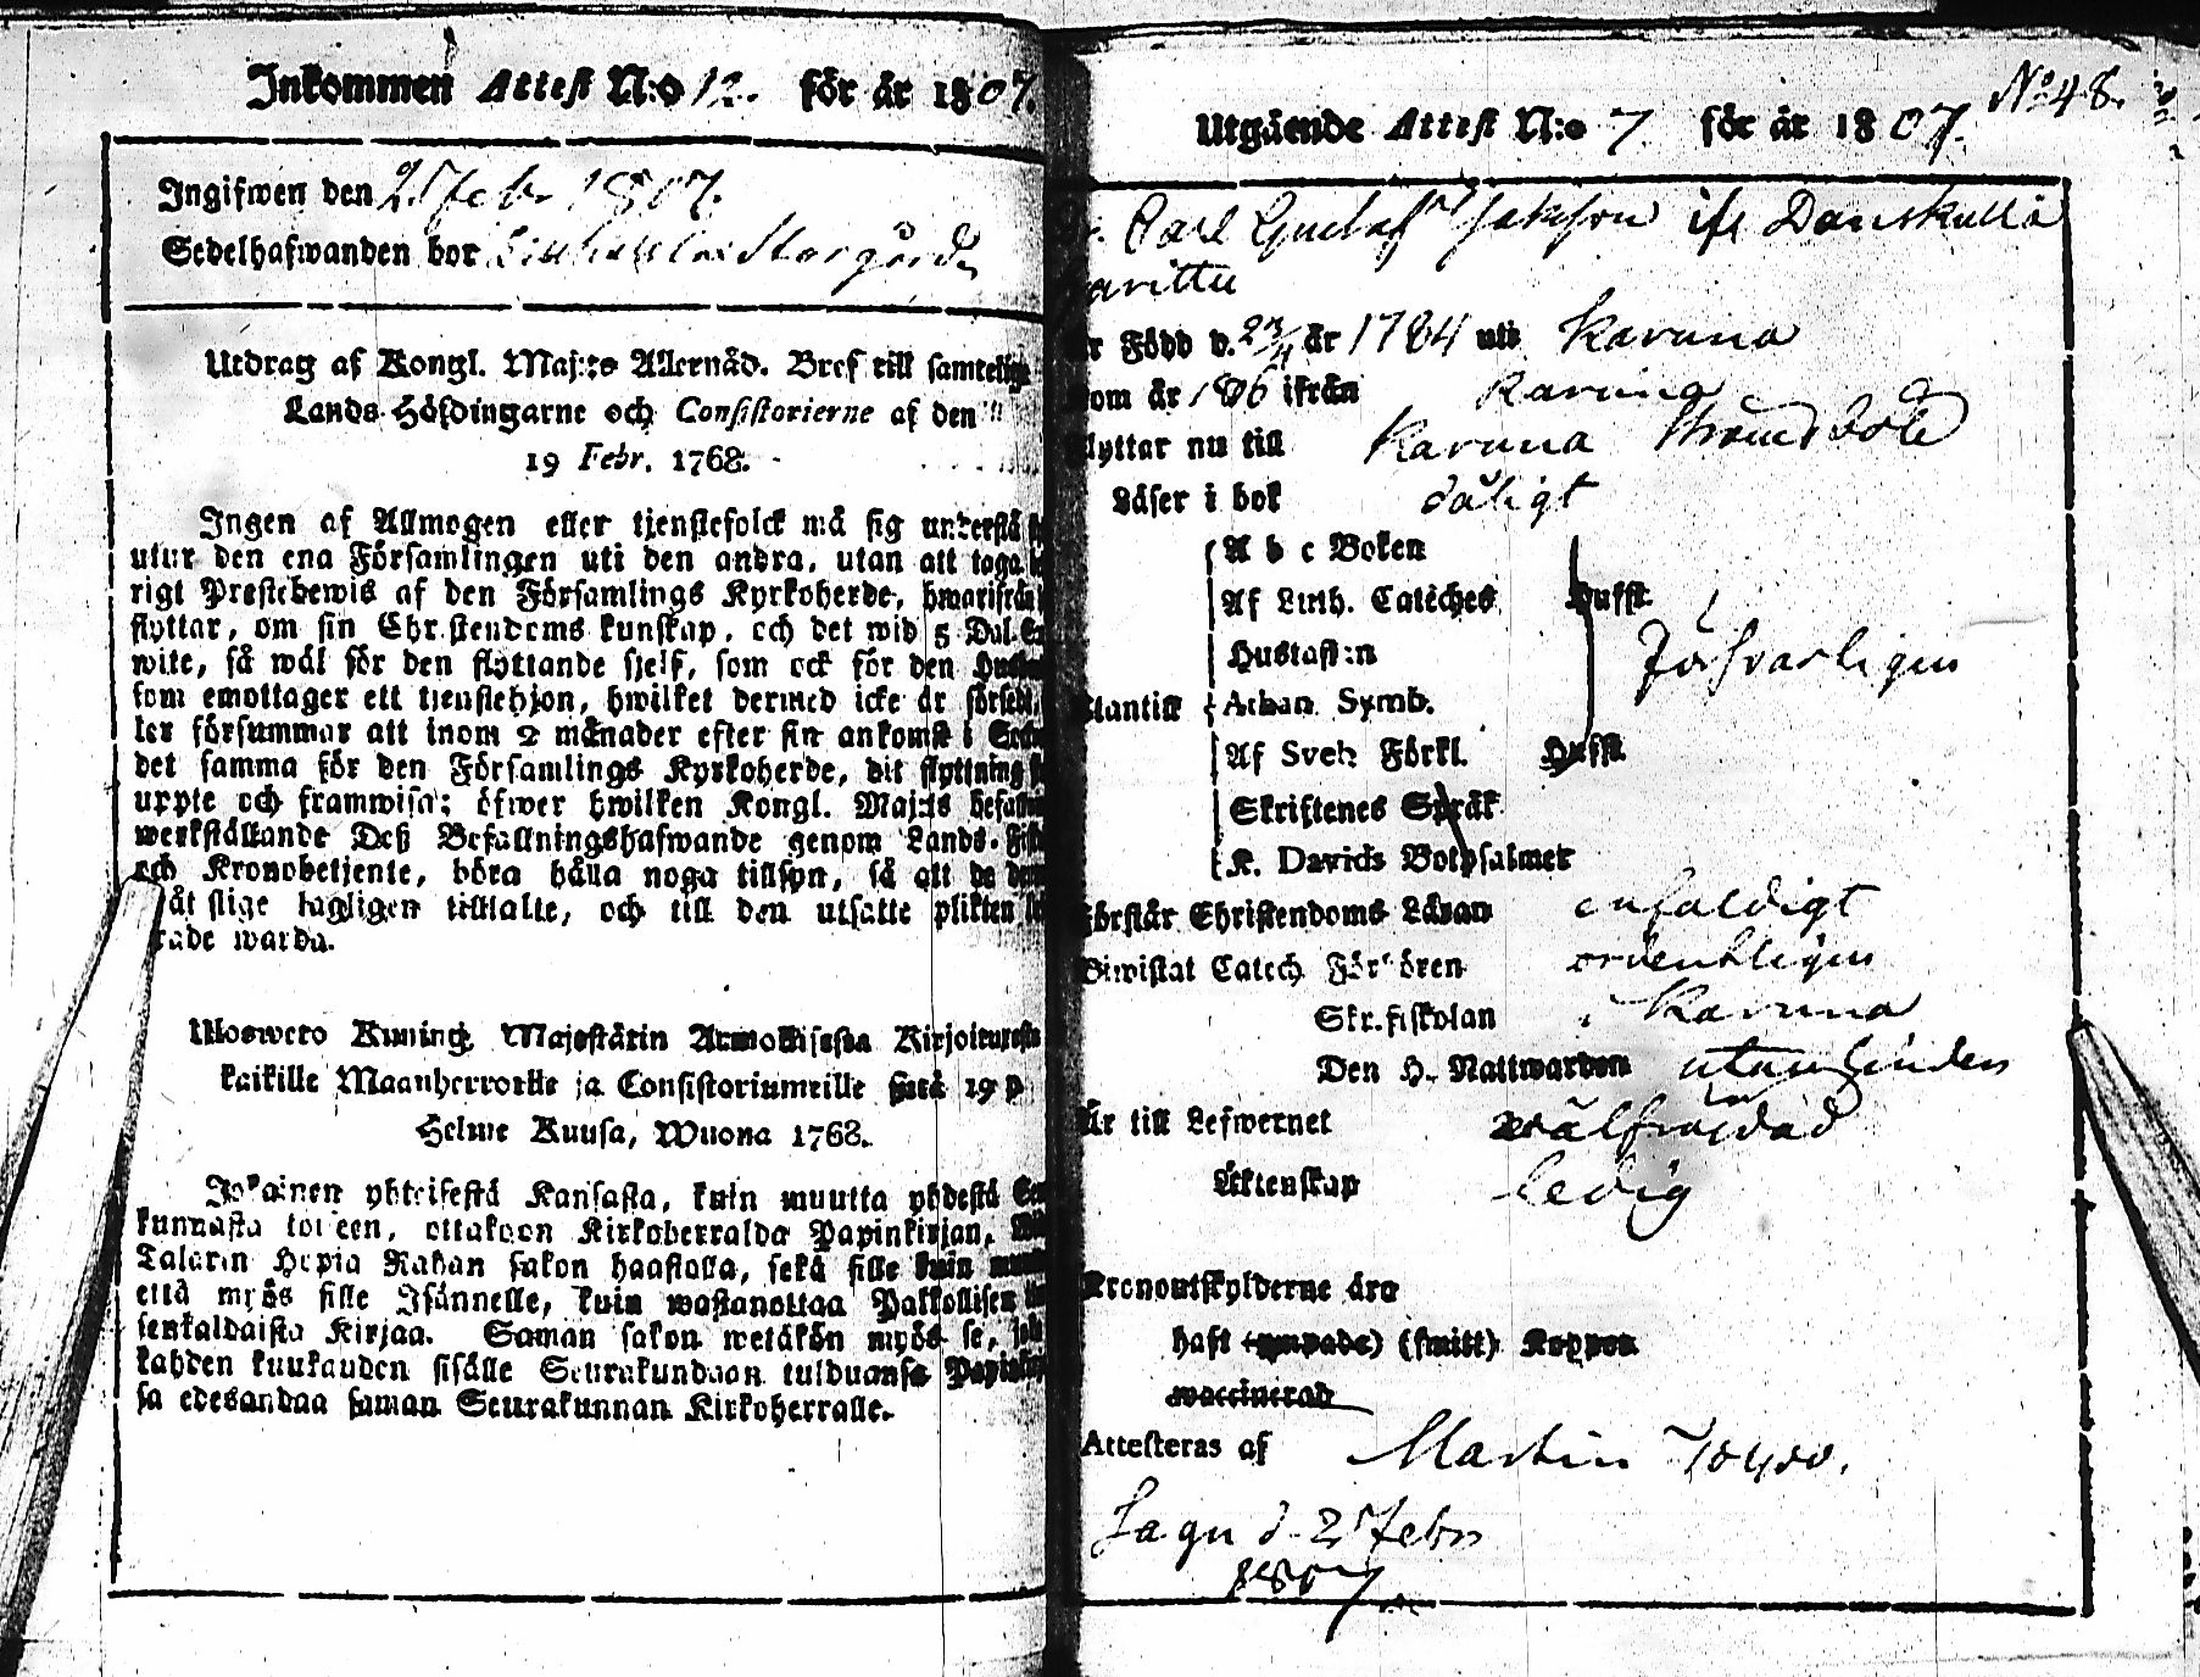 Inkommen Attest N:o 12. för år 1807.
Ingifwen den 25 Feb. 1807.
Sedelhafwanden bor Storgård
Utdrag af Kongl. Maj:ts Allernåd. Bref till samtelige
Lands-Höfdingarne och Consistorierne af den
19 Febr. 1768.
Ingen af Allmogen eller tjenstefolck må sig understå
utur den ena Församlingen uti den andra, utan att taga
rigt Prestebewis af den Församlings Kyrkoherde, hwarifrån
flyttar, om sin Christendoms kunskap, och det wid 5 Dal.
wite, så wäl för den flyttande sjelf, som ock för den
som emottager ett tjenstehjon, hwilket dermed icke är försedt,
ler försummar att inom 2 månader efter sin ankomst i
det samma för den Församlings Kyrkoherde, dit flyttning
uppte och framwisa; öfwer hwilken Kongl. Maj:ts
werkställande Deß Befallningshafwande genom Lands-
och Kronobetjente, böra hålla noga tillsyn, så att de
slige lagligen tilltalte, och till den utsatte plikten
warda.
Uloswето Kuning. Majestätin Armollisesta Kirjoituresta
kaikille Maanherroille ja Consistoriumeille siitä 19 p
Helme Kuusa, Wuona 1768.
Jokainen yhteisestä Kansasta, kuin muutta yhdestä
kunnasta toiseen, ottakoon Kirkoherralda Papinkirjan,
Talarin Hopia Rahan sakon haastolla, sekä sille kuin
että myös sille Isännelle, kuin wastanottaa Palkollisen
senkaldaista Kirjaa. Saman sakon wetäkön myös se,
kahden kuukauden sisälle Seurakundaan tulduansa
sa edesandaa saman Seurakunnan Kirkoherralle.
Utgående Attest N:o 7 för år 1807. No 48.
Carl Gustaf Jakobson ifr Danskulla
Född d. 23/4 år 1784 uti Karuna
om år 1806 ifrån Karuna
lyttar nu till Karuna Strömsböle
Läser i bok dåligt
A b c Boken
Af Luth. Catèches Hufst.
Hustafl:n Försvarligen
Athan. Symb.
Af Sveb. Förkl. Hufst.
Skriftenes Språk
K. Davids Botpsalmer
Förstår Christendoms Läran enfaldigt
Biwistat Catech. Förhören ordentligen
Skriftskolan i Karuna
Den H. Nattwarden utan hinder
Är till Lefwernet wälfrägdad
Äktenskap ledig
Kronoutskylderne äro
haft (ympade) (smitt) Koppor
waccinerad
Attesteras af Martin
Sagu d. 25 Febr
1807